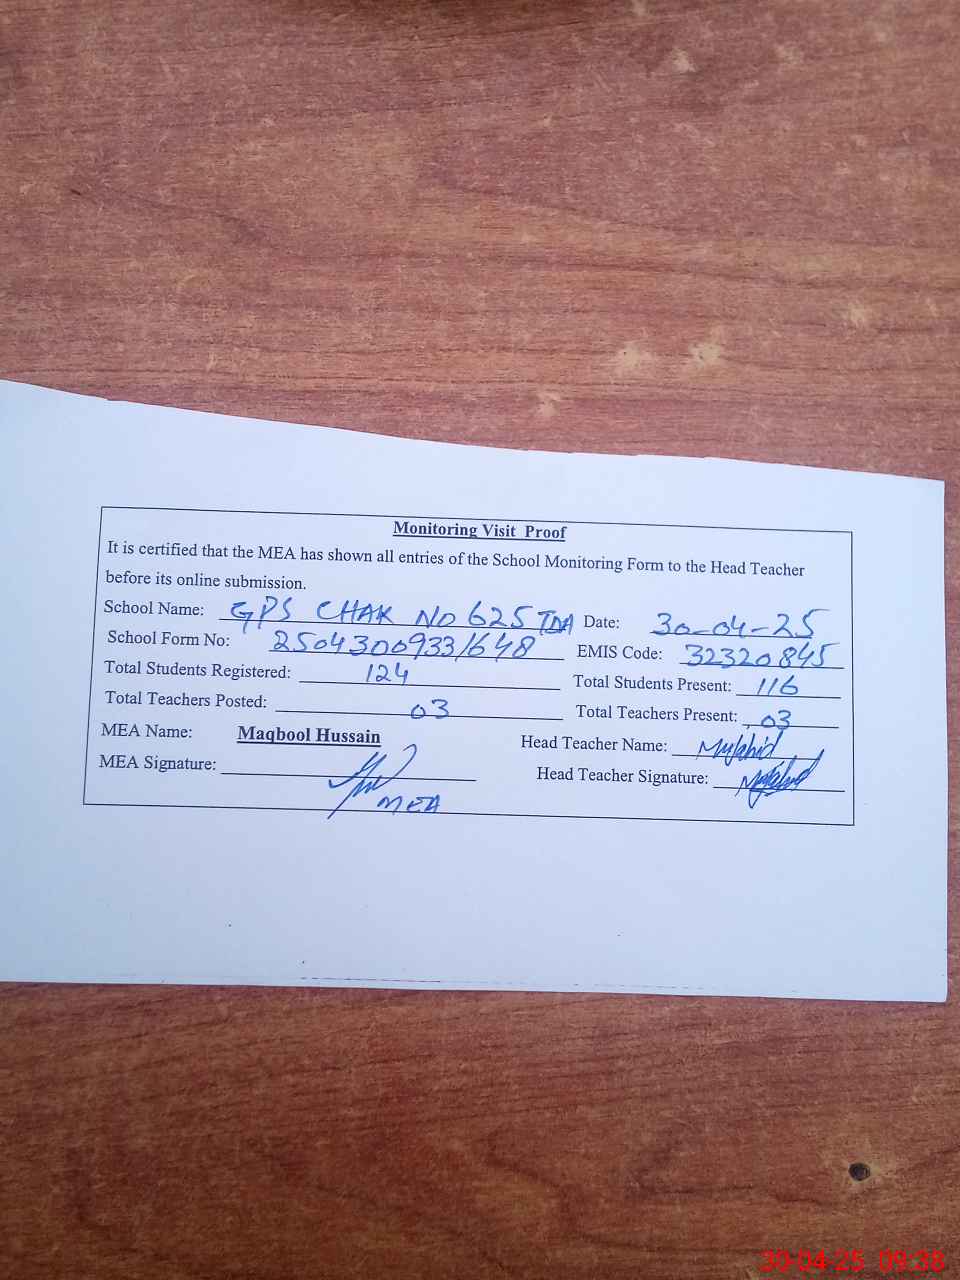 Monitoring Visit Proof
It is certified that the MEA has shown all entries of the School Monitoring Form to the Head Teacher
before its online submission.
School Name: GPS CHAK NO 625 TDA Date: 30-04-25
School Form No: 2504300933/648 EMIS Code: 32320845
Total Students Registered: 124 Total Students Present: 116
Total Teachers Posted: 03 Total Teachers Present: 03
MEA Name: Maqbool Hussain Head Teacher Name: Mujahid
MEA Signature: Head Teacher Signature: Mujahid
MEA
30-04-25 09:38